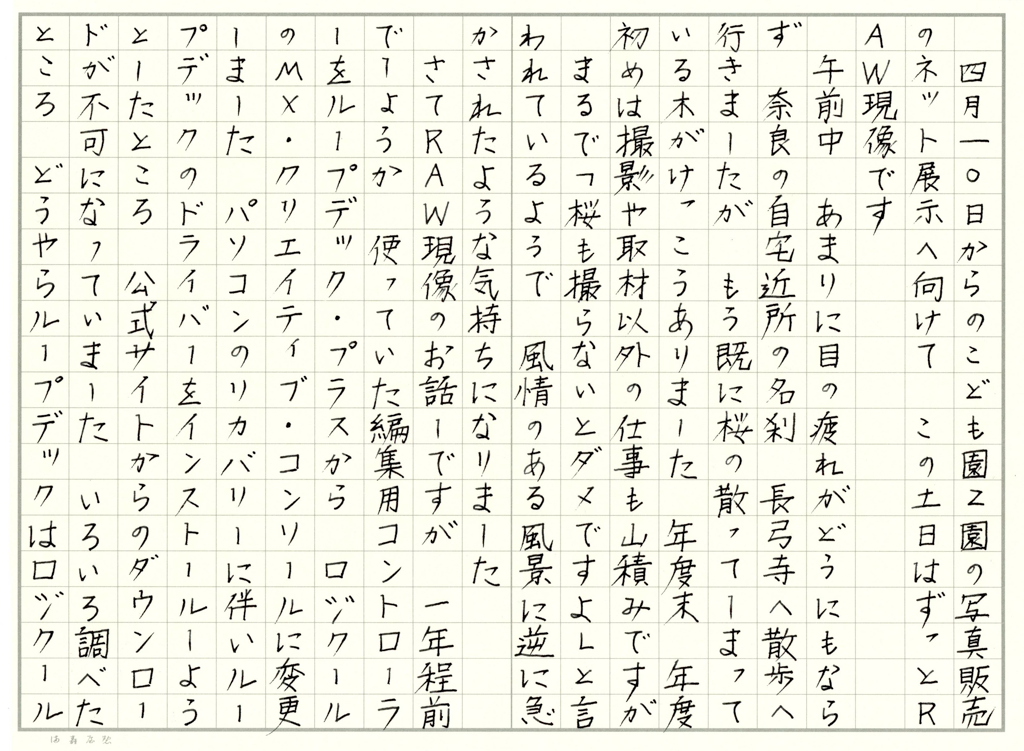 四月一〇日からのこども園2園の写真販売
のネット展示へ向けて　この土日はずっとR
AW現像です
午前中　あまりに目の疲れがどうにもなら
ず　奈良の自宅近所の名刹　長弓寺へ散歩へ
行きましたが　もう既に桜の散ってしまって
いる木がけっこうありました　年度末　年度
初めは撮影や取材以外の仕事も山積みですが
まるで「桜も撮らないとダメですよ」と言
われているようで　風情のある風景に逆に急
かされたような気持ちになりました
さてRAW現像のお話しですが　一年程前
でしょうか　使っていた編集用コントローラ
ーをループデック・プラスから　ロヅクール
のMX・クリエイティブ・コンソールに変更
しました　パソコンのリカバリーに伴いルー
プデックのドライバーをインストールしよう
としたところ　公式サイトからのダウンロー
ドが不可になっていました　いろいろ調べた
ところ　どうやらループデックはロヅクール